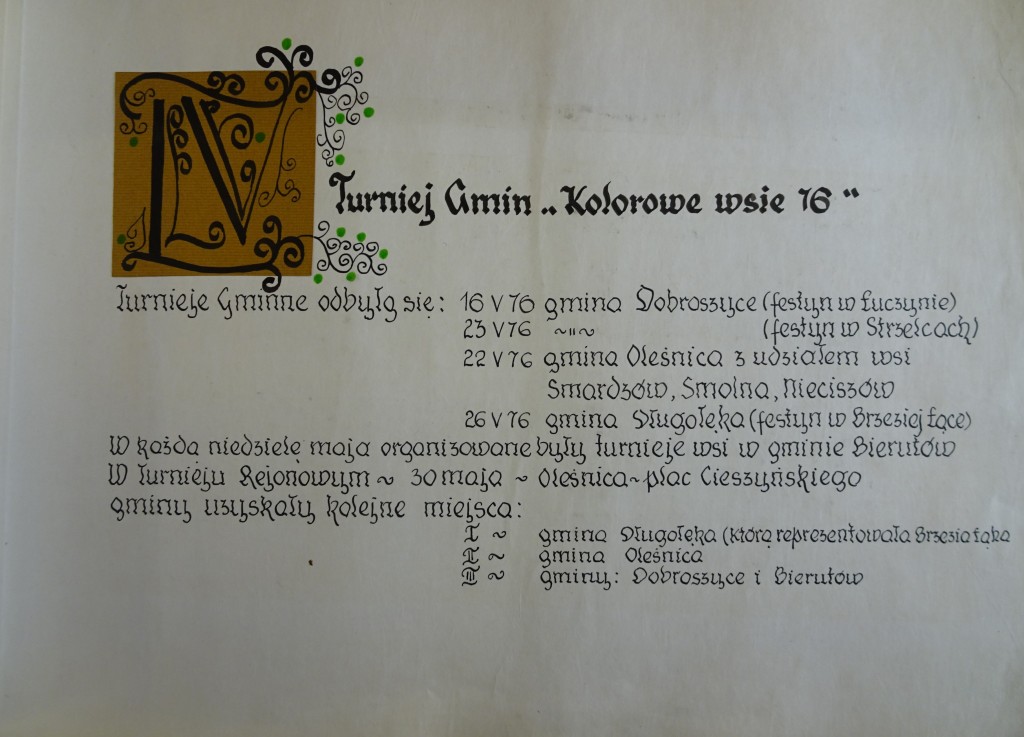 IV Turniej Gmin „Kolorowe wsie 76“
Turnieje Gminne odbyły się: 16 V 76 gmina Dobroszyce (festyn w Łuczynie)
23 V 76 ~"~ (festyn w Strzelcach)
22 V 76 gmina Oleśnica z udziałem wsi
Smardzów, Smolna, Nieciszów
26 V 76 gmina Długołęka (festyn w Brzeziej Łące)
W każda niedzielę maja organizowane były turnieje wsi w gminie Bierutów
W Turnieju Rejonowym ~ 30 maja ~ Oleśnica ~ plac Cieszyńskiego
gminy uzyskały kolejne miejsca:
I ~ gmina Długołęka (którą reprezentowała Brzezia Łąka
II ~ gmina Oleśnica
III ~ gminy: Dobroszyce i Bierutów